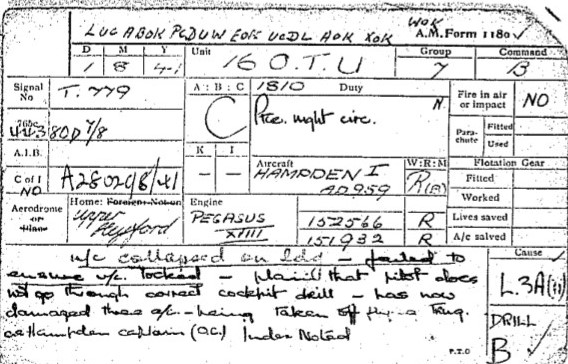 WOK
LUC ABOK PCDUW EOK UCDL AOK XOK A.M. Form 1180
D M Y Unit Group Command
1 8 41 16 O.T.U 7 B
Signal No T.779
A : B : C 1810 Duty N.
C Prc. night circ.
Fire in air or impact NO
765c 443 80D 7/8
Para-chute Fitted
Used
A.I.B.
K I Aircraft W:R:M Flotation Gear
C of I NO A2802/8/41
— — HAMPDEN I AD959 R(B)
Fitted
Worked
Aerodrome or Home: Upper Heyford
Engine
PEGASUS XVIII 152566 R
151932 R
Lives saved
A/c salved
u/c collapsed on ldg – failed to
ensure u/c locked – plain that pilot does
not go through correct cockpit drill – has now
damaged three a/c – being taken off
Hampden captain (O.C.) Index Noted
Cause
L.3A(ii)
DRILL
B
P.T.O